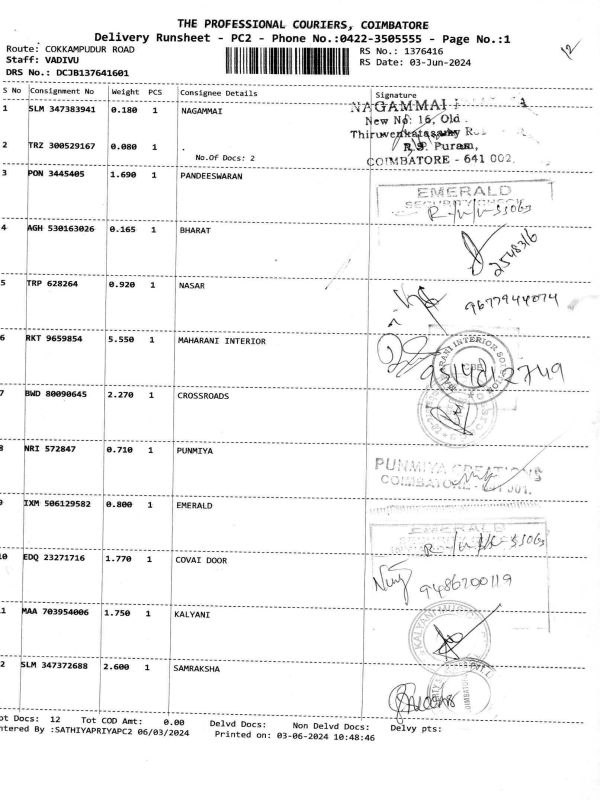 THE PROFESSIONAL COURIERS, COIMBATORE
Delivery Runsheet - PC2 - Phone No.:0422-3505555 - Page No.:1
Route: COKKAMPUDUR ROAD
RS No.: 1376416
Staff: VADIVU
RS Date: 03-Jun-2024
DRS No.: DCJB137641601
12
S No Consignment No Weight PCS Consignee Details Signature
1 SLM 347383941 0.180 1 NAGAMMAI
NAGAMMAI
New No: 16, Old
2 TRZ 300529167 0.080 1 .
No.Of Docs: 2
R.S. Puram,
COIMBATORE - 641 002.
3 PON 3445405 1.690 1 PANDEESWARAN
EMERALD
SECURITY CHECK
4 AGH 530163026 0.165 1 BHARAT
2548316
5 TRP 628264 0.920 1 NASAR
9677944074
6 RKT 9659854 5.550 1 MAHARANI INTERIOR
7 BWD 80090645 2.270 1 CROSSROADS
8 NRI 572847 0.710 1 PUNMIYA
PUNMIYA CREATIONS
COIMBATORE
9 IXM 506129582 0.800 1 EMERALD
EMERALD
10 EDQ 23271716 1.770 1 COVAI DOOR
9486200119
11 MAA 703954006 1.750 1 KALYANI
KALYANI
12 SLM 347372688 2.600 1 SAMRAKSHA
ot Docs: 12 Tot COD Amt: 0.00 Delvd Docs: Non Delvd Docs: Delvy pts:
ntered By :SATHIYAPRIYAPC2 06/03/2024 Printed on: 03-06-2024 10:48:46